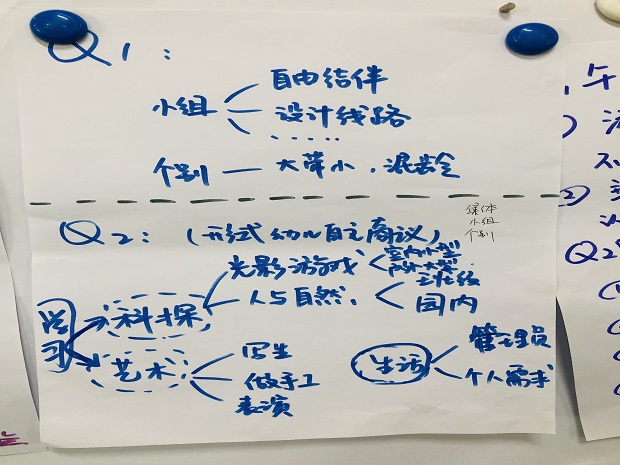 Q1:
自由结伴
小组
设计线路
……
个别 — 大带小,混龄
Q2: (形式幼儿自主商议)
集体
小组
个别
光影游戏
室内小型
户外大型
人与自然
园内
学习
科探
艺术
写生
做手工
表演
生活
管理员
个人需求
午
Q2